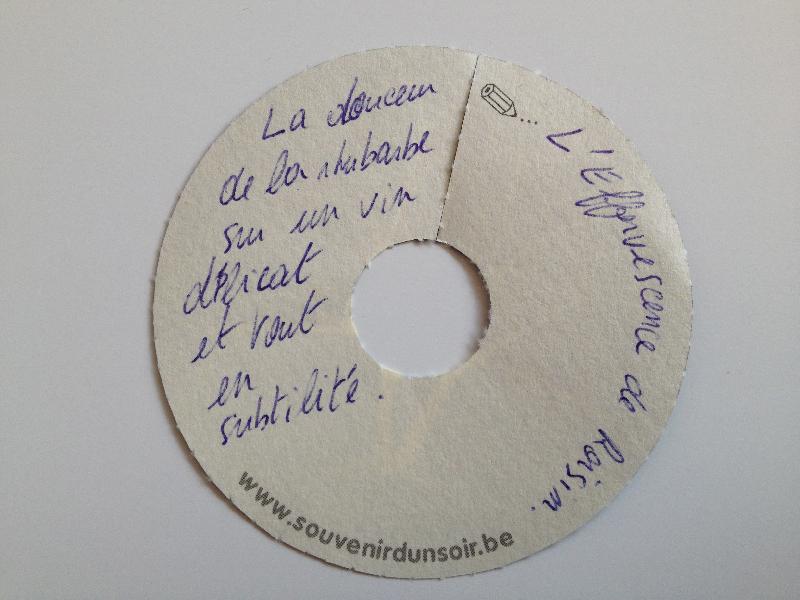 La douceur
de la rhubarbe
sur un vin
délicat
et tout
en
subtilité.
L'Effervescence du Raisin.
www.souvenirdunsoir.be